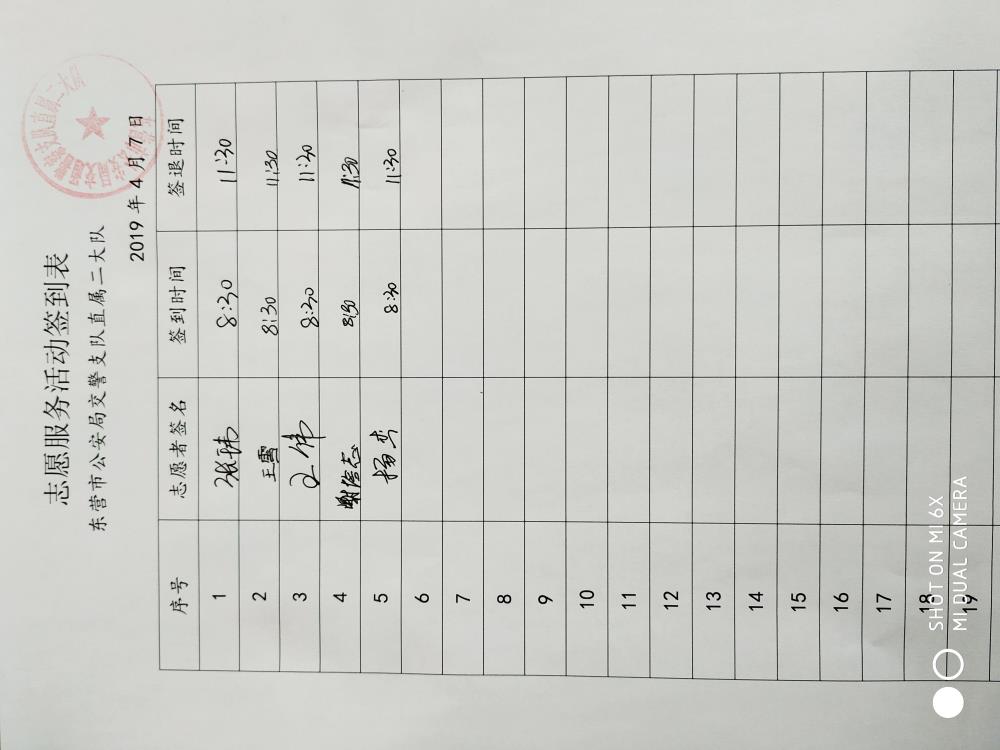 志愿服务活动签到表
东营市公安局交警支队直属二大队
2019 年 4 月 7 日
序号 志愿者签名 签到时间 签退时间
1 张玮 8:30 11:30
2 王雪 8:30 11:30
3 8:30 11:30
4 8:30 11:30
5 杨杰 8:30 11:30
6
7
8
9
10
11
12
13
14
15
16
17
18
19
SHOT ON MI 6X
MI DUAL CAMERA